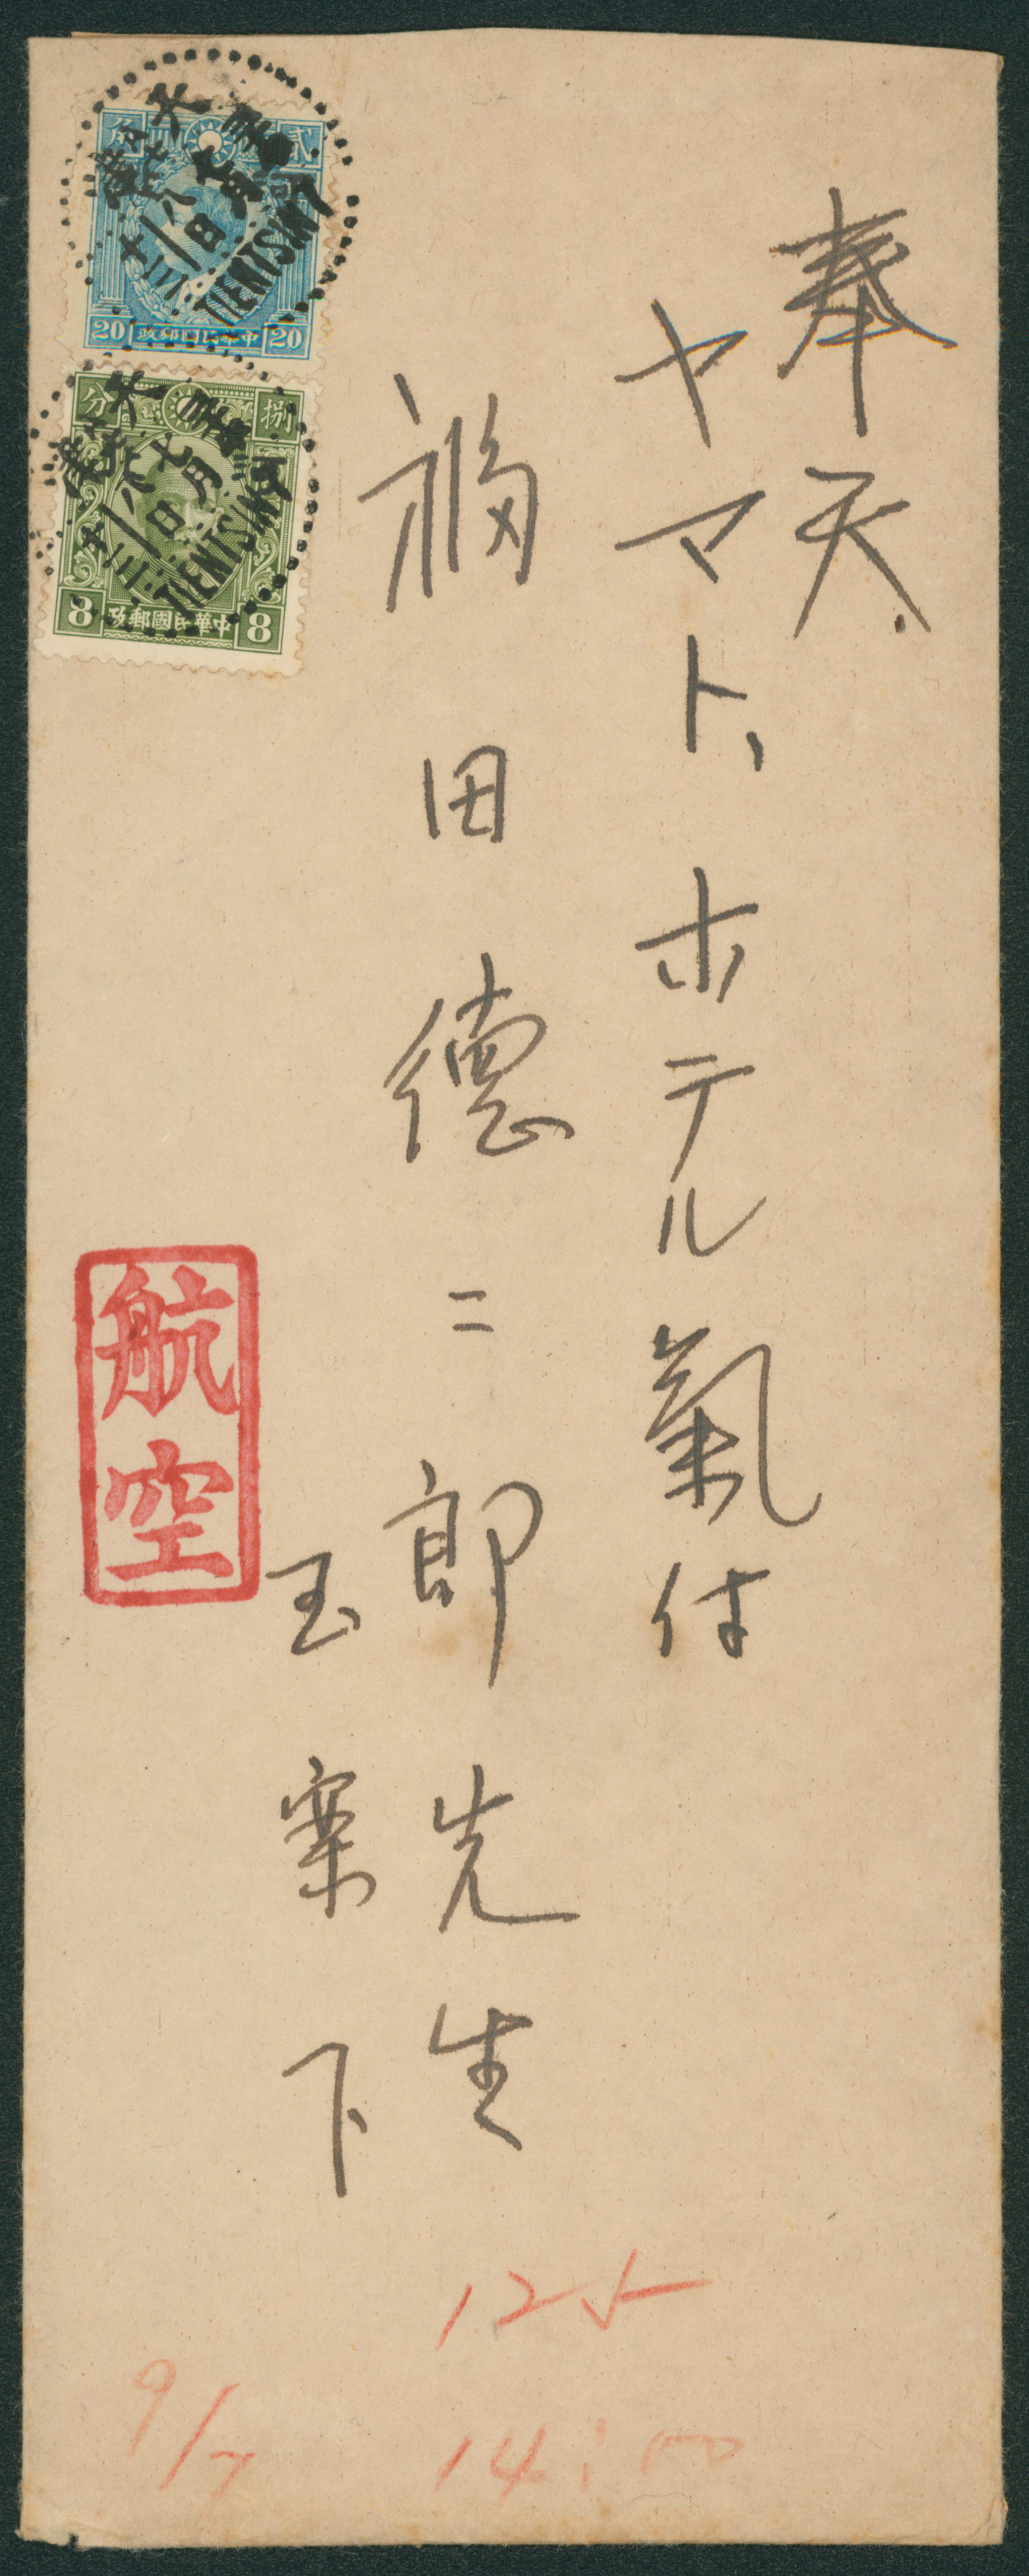 奉天
ヤマト、ホテル氣付
福田德二郎先生
玉案下
航空
貳角
20 中華民國郵政 20
捌分
8 中華民國郵政 8
TIENTSIN
TIENTSIN
12
9/7
14:00